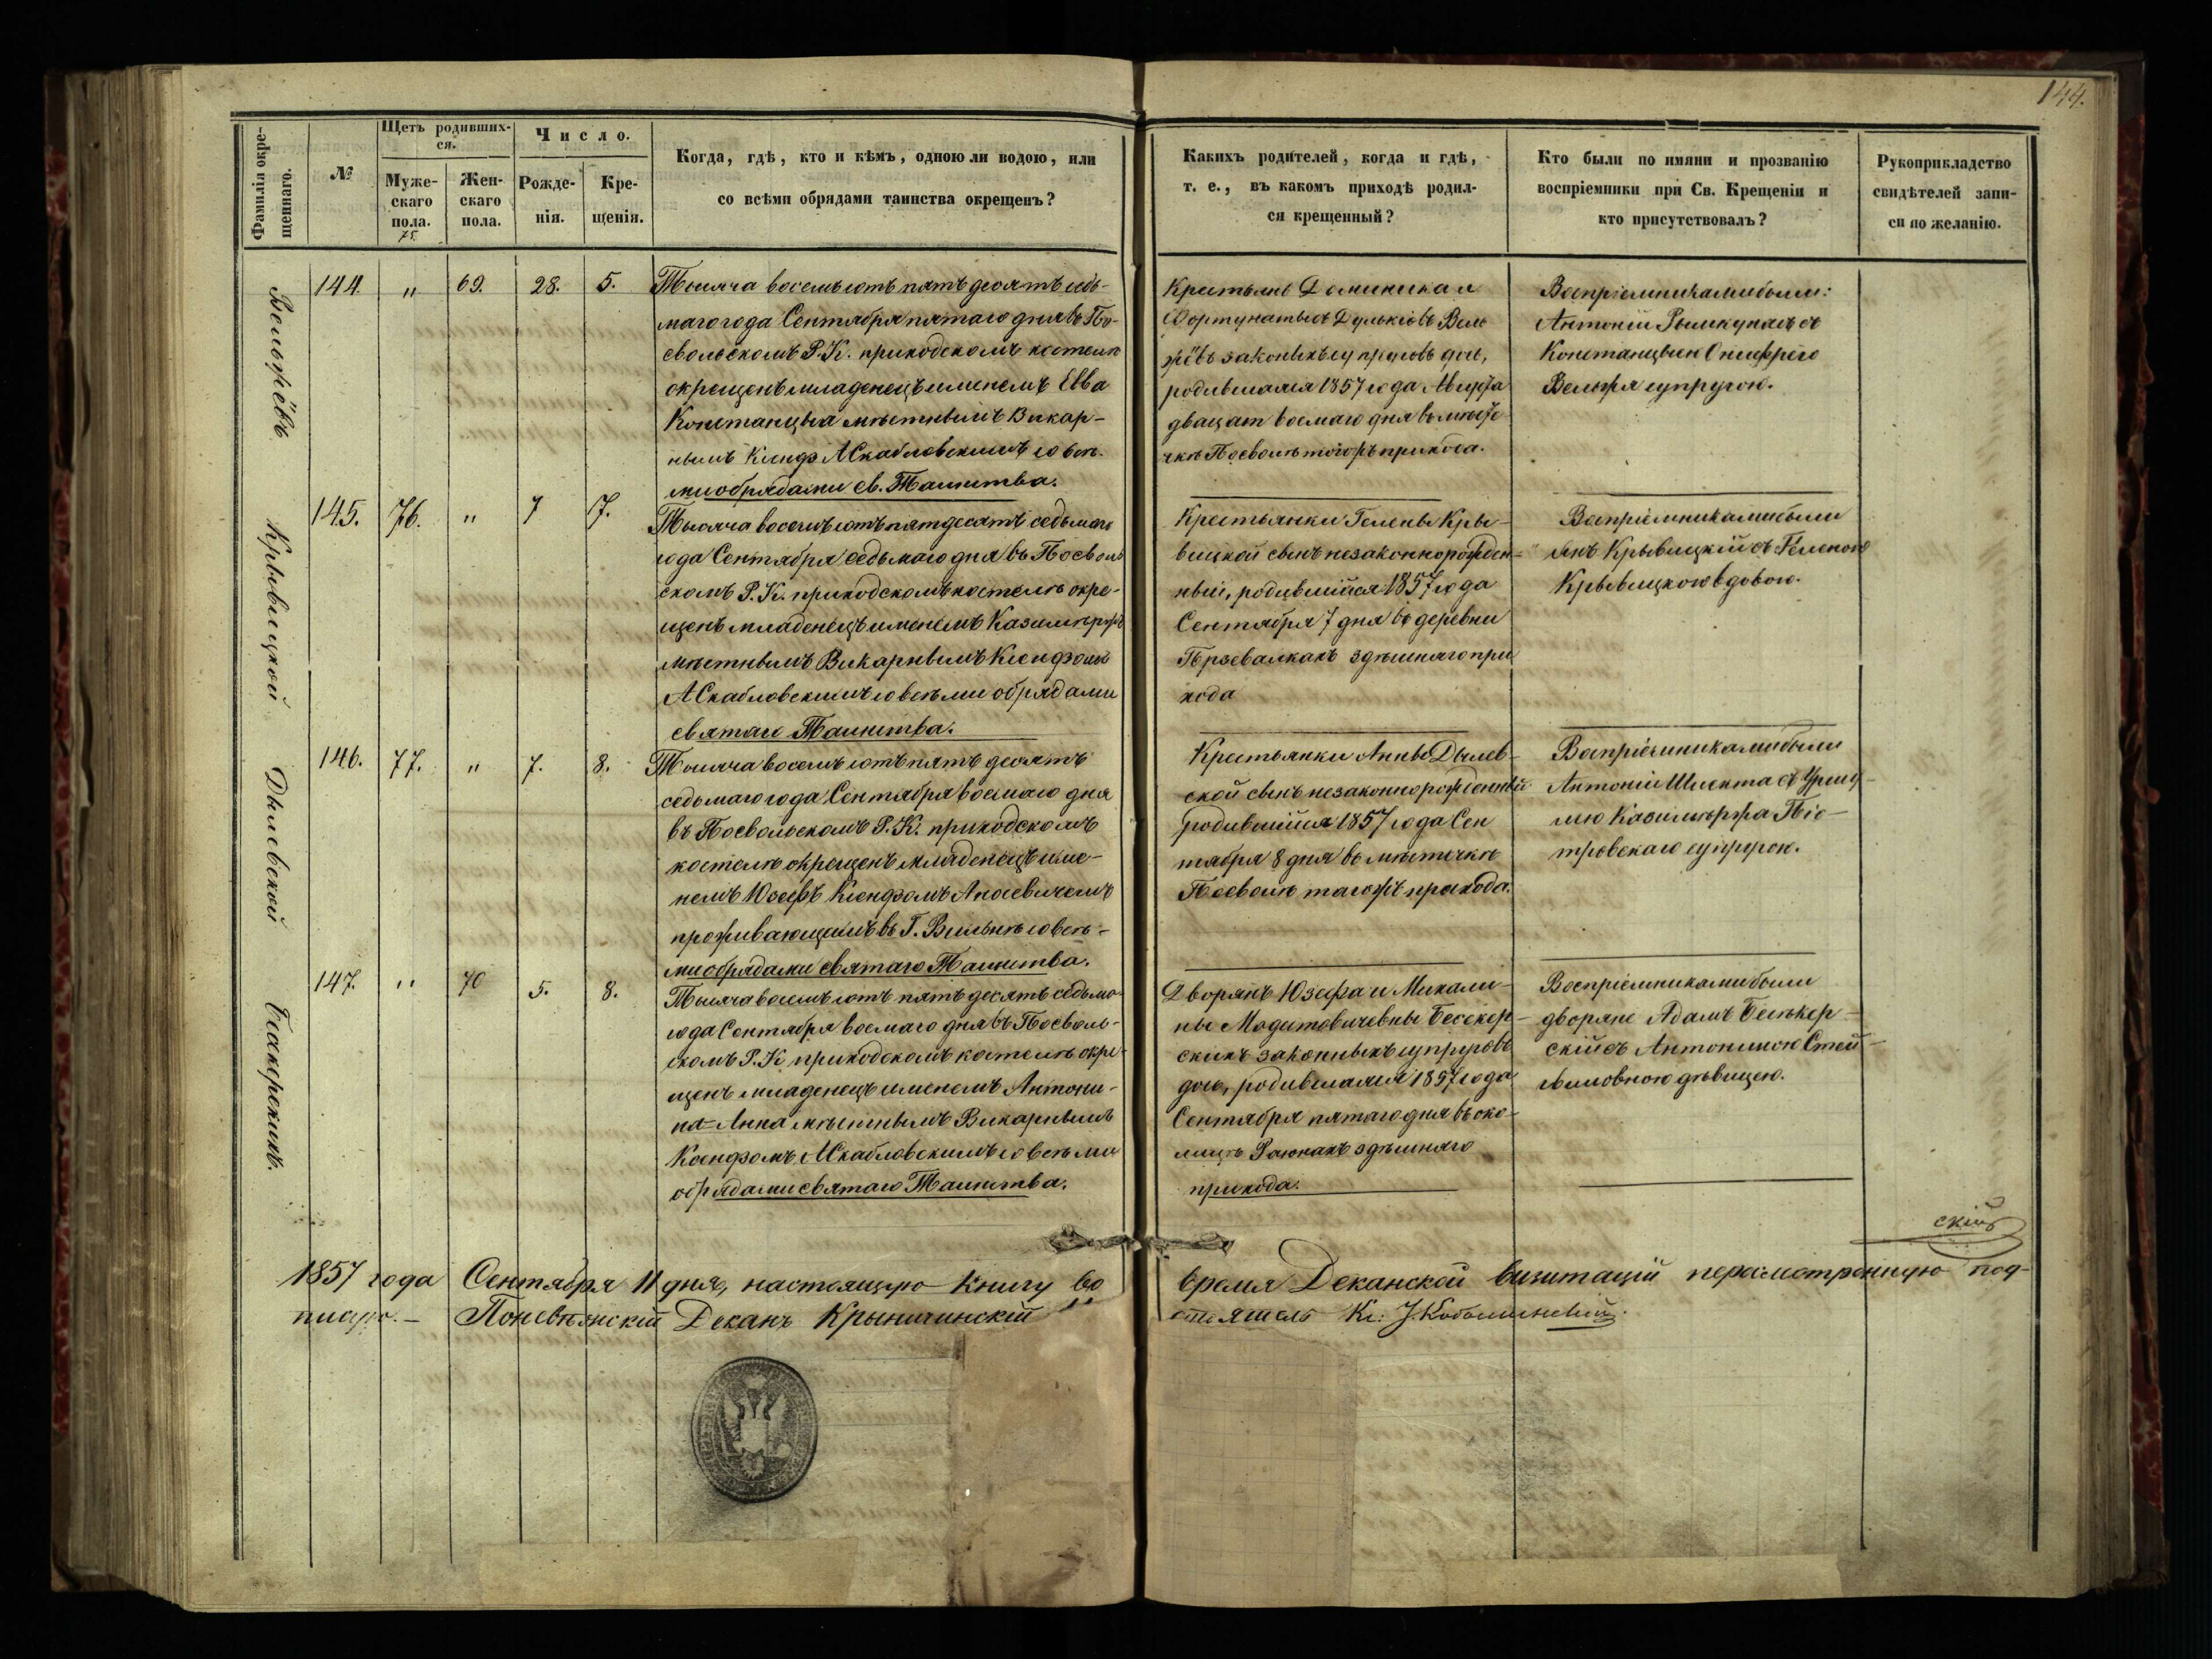 144.
Фамилія окре-
щеннаго.
№
Щетъ родивших-
ся.
Муже-
скаго
пола.
75.
Жен-
скаго
пола.
Число.
Рожде-
нія.
Кре-
щенія.
Когда, гдѣ, кто и кѣмъ, одною ли водою, или
со всѣми обрядами таинства окрещенъ?
Какихъ родителей, когда и гдѣ,
т. е., въ какомъ приходѣ родил-
ся крещенный?
Кто были по имяни и прозванію
воспріемники при Св. Крещеніи и
кто присутствовалъ?
Рукоприкладство
свидѣтелей запи-
си по желанію.
Вельжёвъ
144. " 69. 28. 5.
Тысяча восемьсотъ пятьдесятъ седь-
маго года Сентября пятаго дня въ По-
свольскомъ Р. К. приходскомъ костелѣ
окрещенъ младенецъ именемъ Евва
Констанцыа мѣстнымъ Викар-
нымъ Ксендз А Скабловскимъ со всѣ-
ми обрядами св. Таинства.
Крестьянъ Доминика и
Фортунаты съ Дулькіовъ Вель
жёвъ законныхъ супруговъ дочь,
родившаяся 1857 года Августа
двацат восмаго дня въ мѣсте-
чкѣ Посволѣ тогожъ прихода.
Воспріемниками были:
Антоній Рымкунасъ съ
Констанцыею Онуфрего
Вельжя супругою.
Крывицкой
145. 76. " 7 7.
Тысяча восемьсотъ пятдесятъ седьмаго
года Сентября седьмаго дня въ Посволь
скомъ Р. К. приходскомъ костелѣ окре-
щенъ младенецъ именемъ Казимѣржъ
мѣстнымъ Викарнымъ Ксендзомъ
А Скабловскимъ со всѣми обрядами
святаго Таинства.
Крестьянки Гелены Кры-
вицкой сынъ незаконнорожден-
ный, родившійся 1857 года
Сентября 7 дня въ деревни
Прзевалкахъ здѣшняго при
хода
Воспріемниками были
Янъ Крывицкій съ Геленою
Крывицкою вдовою.
Дылевской
146. 77. " 7. 8.
Тысяча восемьсотъ пятьдесятъ
седьмаго года Сентября восмаго дня
въ Посвольскомъ Р. К. приходскомъ
костелѣ окрещенъ младенецъ име-
немъ Юзефъ Ксендзомъ Аносевичемъ
проживающимъ въ Г. Вильнѣ со всѣ-
ми обрядами святаго Таинства.
Крестьянки Анны Дылев-
ской сынъ незаконнорожденный
родившійся 1857 года Сен
тября 8 дня въ мѣстечкѣ
Посволѣ тагожъ прихода.
Воспріемниками были
Антоній Шлекта съ Уршу-
лю Казимѣржа Піо-
тровскаго супругою.
147. " 70 5. 8.
Тысяча восемьсотъ пятьдесятъ седьма
года Сентября восмаго дня въ Посволь-
скомъ Р. К. приходскомъ костелѣ окре-
щенъ младенецъ именемъ Антони-
на-Анна мѣстнымъ Викарнымъ
Ксендзомъ А Скабловскимъ со всѣми
обрядами святаго Таинства.
Дворянъ Юзефа и Михали-
ны Модштовичевны Бесекер-
скихъ законныхъ супруговъ
дочь, родившаяся 1857 года
Сентября пятаго дня въ око-
лицѣ Раюнахъ здѣшняго
прихода.
Воспріемниками были
дворяне Адамъ Бесѣкер-
скій съ Антониною
дѣвицею.
скій
1857 года Сентября 11 дня, настоящую книгу во время Деканской визитаціи пересмотренную под-
писую. — Поневѣжскій Деканъ Крыничинскій